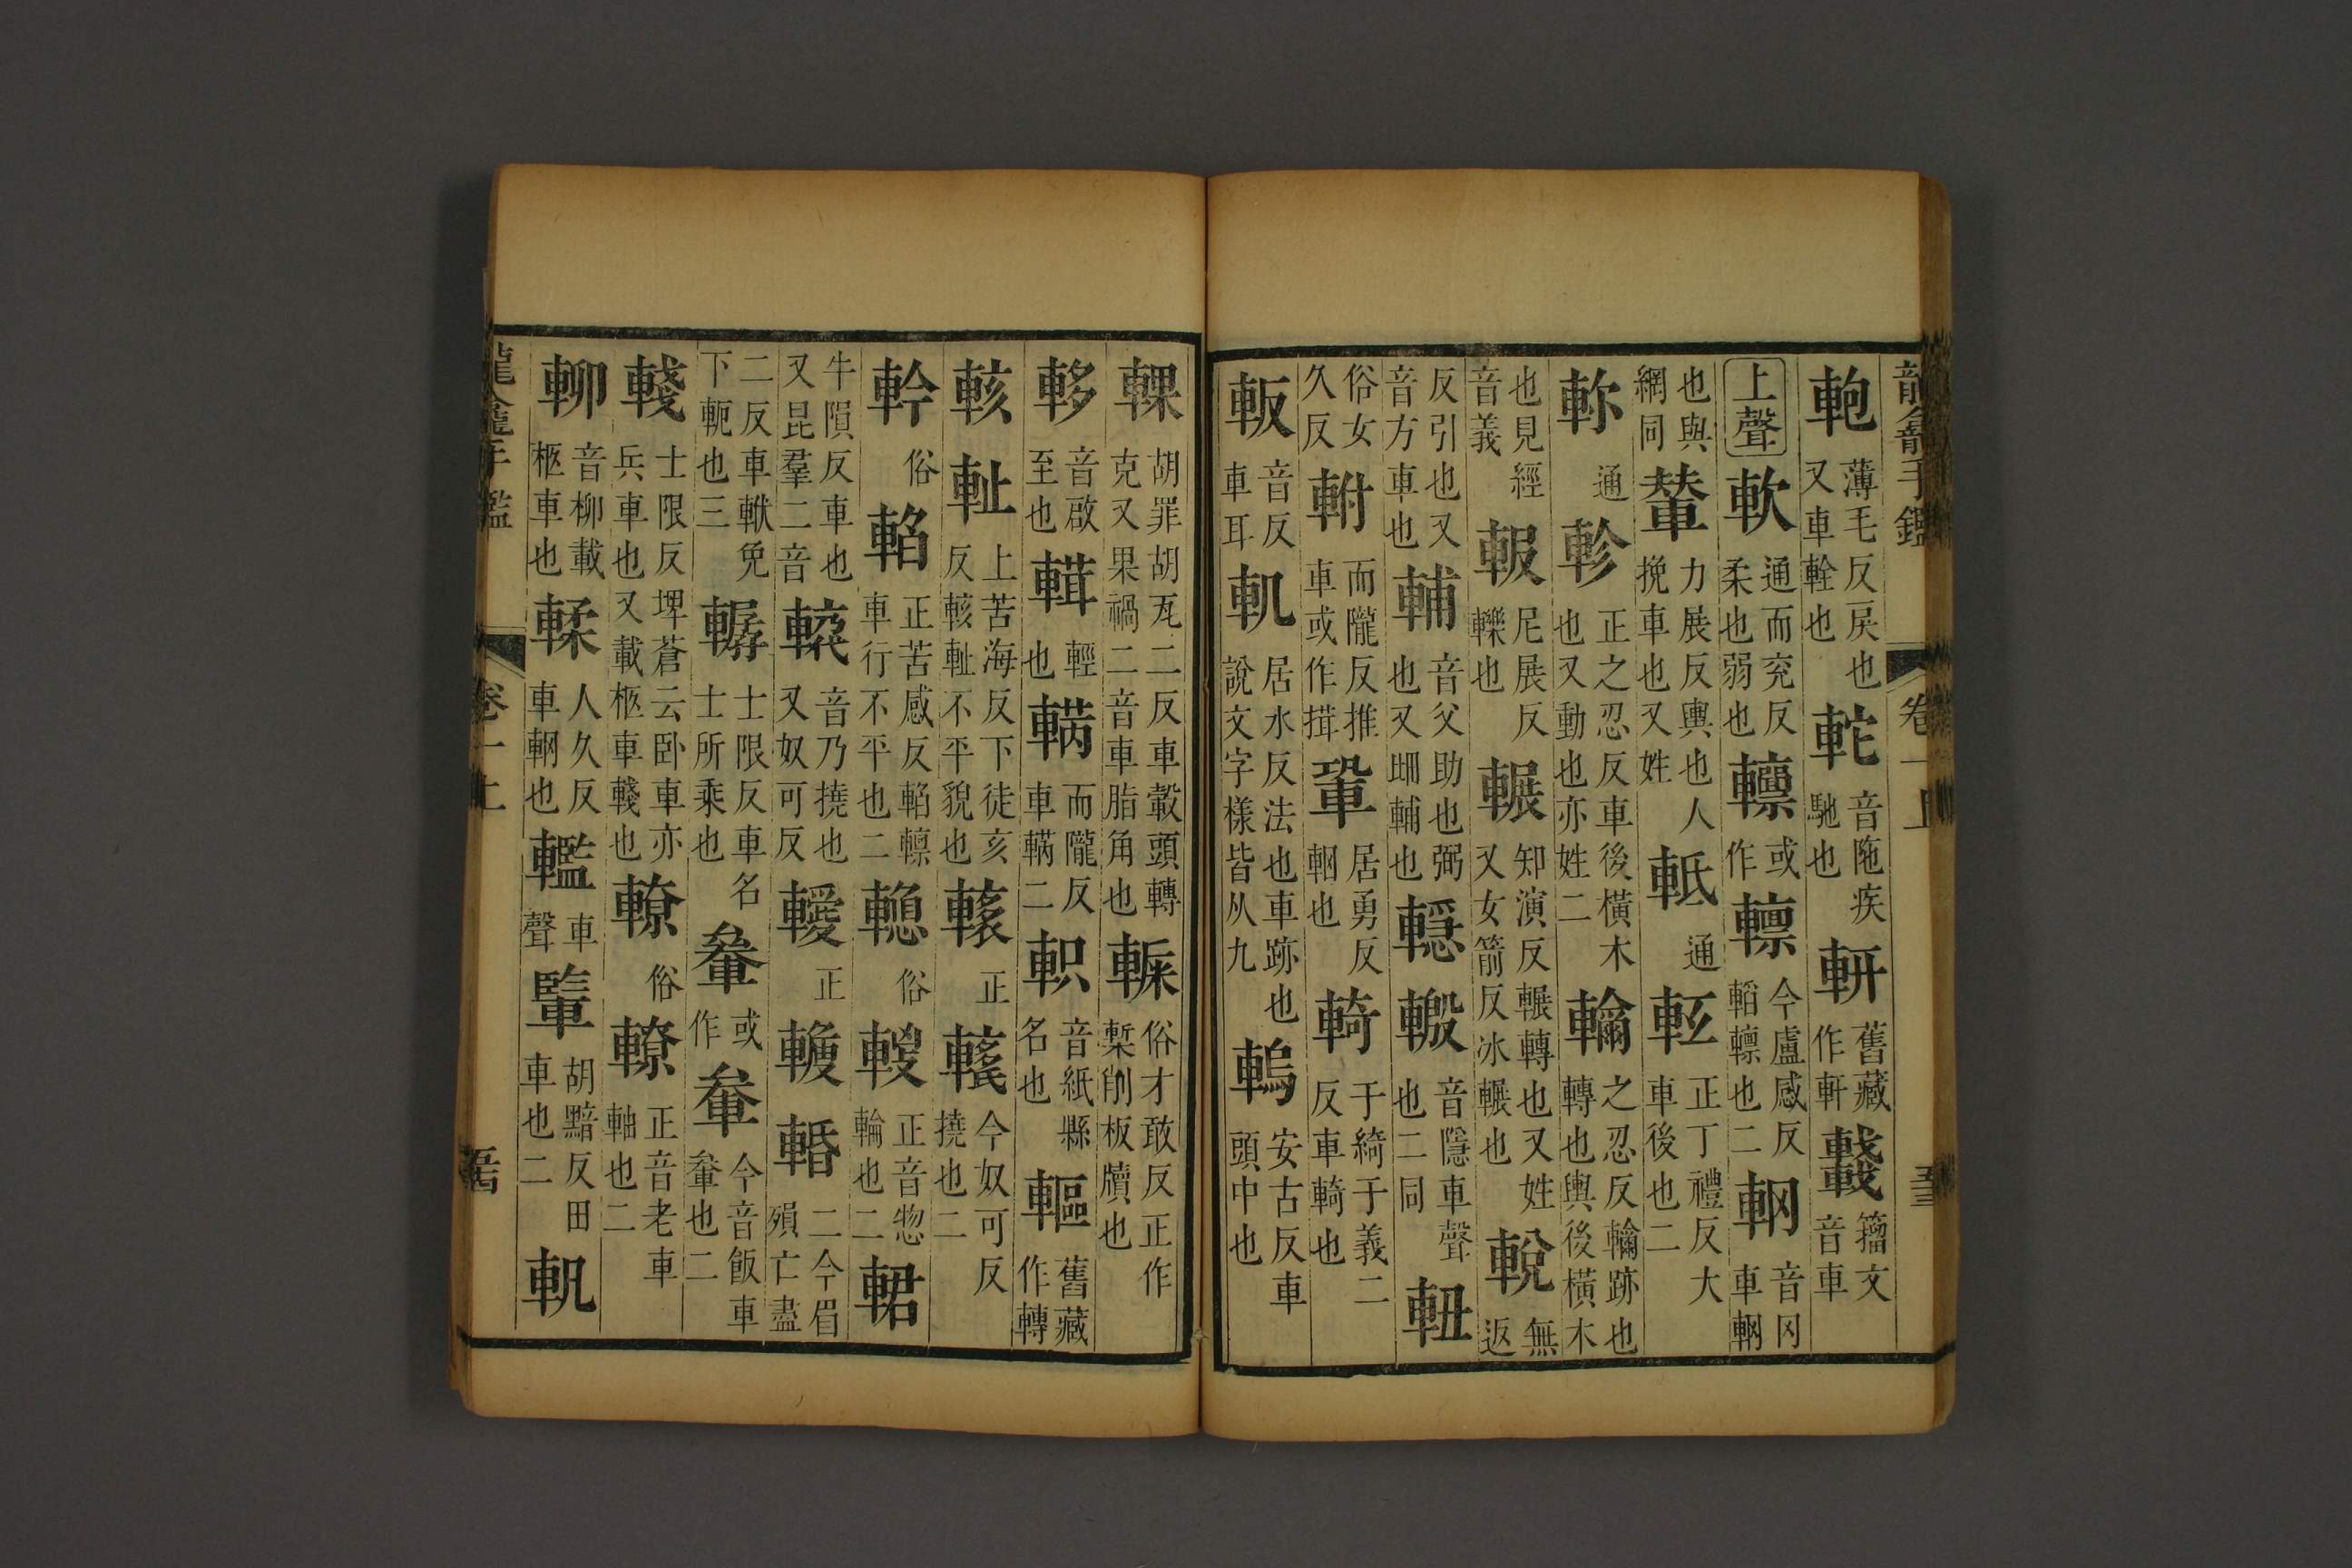 龍龕手鑑 卷一上
䩝薄毛反戾也又車輇也䡐音陁疾馳也䡄舊藏作軒𨏖籀文音車
上聲軟通而兖反柔也弱也轁或作𨎹今盧感反輡𨎹也二輞音冈車輞
也與網同輦力展反輿也人挽車也又姓軧通䡃正丁禮反大車後也二
軫通軫正之忍反車後橫木也又動也亦姓二𨎪之忍反轥跡也轉也輿後橫木
也見經音義䡊尼展反轢也輾知演反輾轉也又姓又女箭反冰輾也輓無返
反引也又音方車也輔音父助也弼也又𠕋輔也𨏈䡣音隱車聲也二同䡇
俗女久反軵而隴反推車或作搑鞏居勇反輞也輢于綺于義二反車輢也
軓音反車耳軌居水反法也車跡也說文字樣皆从九䡧安古反車頭中也
輠胡罪胡瓦二反車轂頭轉克又果禍二音車脂角也䡽俗才敢反正作槧削板牘也
䡔音啟至也輯輕也䡬而隴反車䡬二軹音紙縣名也䡱舊藏作轉
輆䡋上苦海反下徒亥反輆䡋不平貌也正今奴可反撓也二
䡍俗輡正苦感反輡𨎹車行不平也二俗正音惣輪也二輑
牛隕反車也又昆羣二音音乃撓也又奴可反正二今眉殞亡盡
二反車軷免下軛也三轏士限反車名士所乘也軬或作軬今音飯車軬也二
輚士限反埤蒼云卧車亦兵車也又載柩車輚也轑俗轑正音老車軸也二
䡦音柳載柩車也輮人久反車輞也轞車聲𨎥胡黯反田車也二軓
龍龕手鑑 卷一上